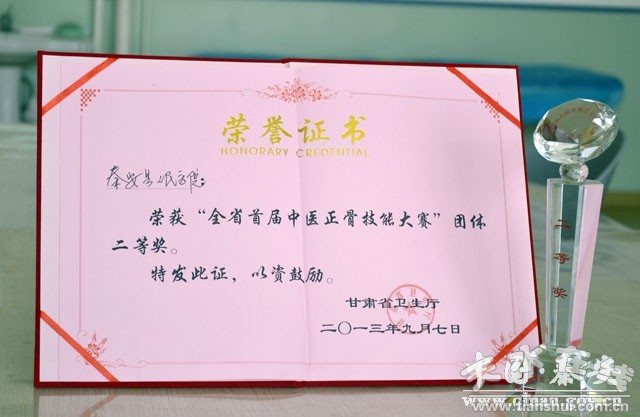 荣誉证书
HONORARY CREDENTIAL
荣获“全省首届中医正骨技能大赛”团体
二等奖。
特发此证，以资鼓励。
甘肃省卫生厅
二〇一三年九月七日
二等奖
www.tianshui.com.cn